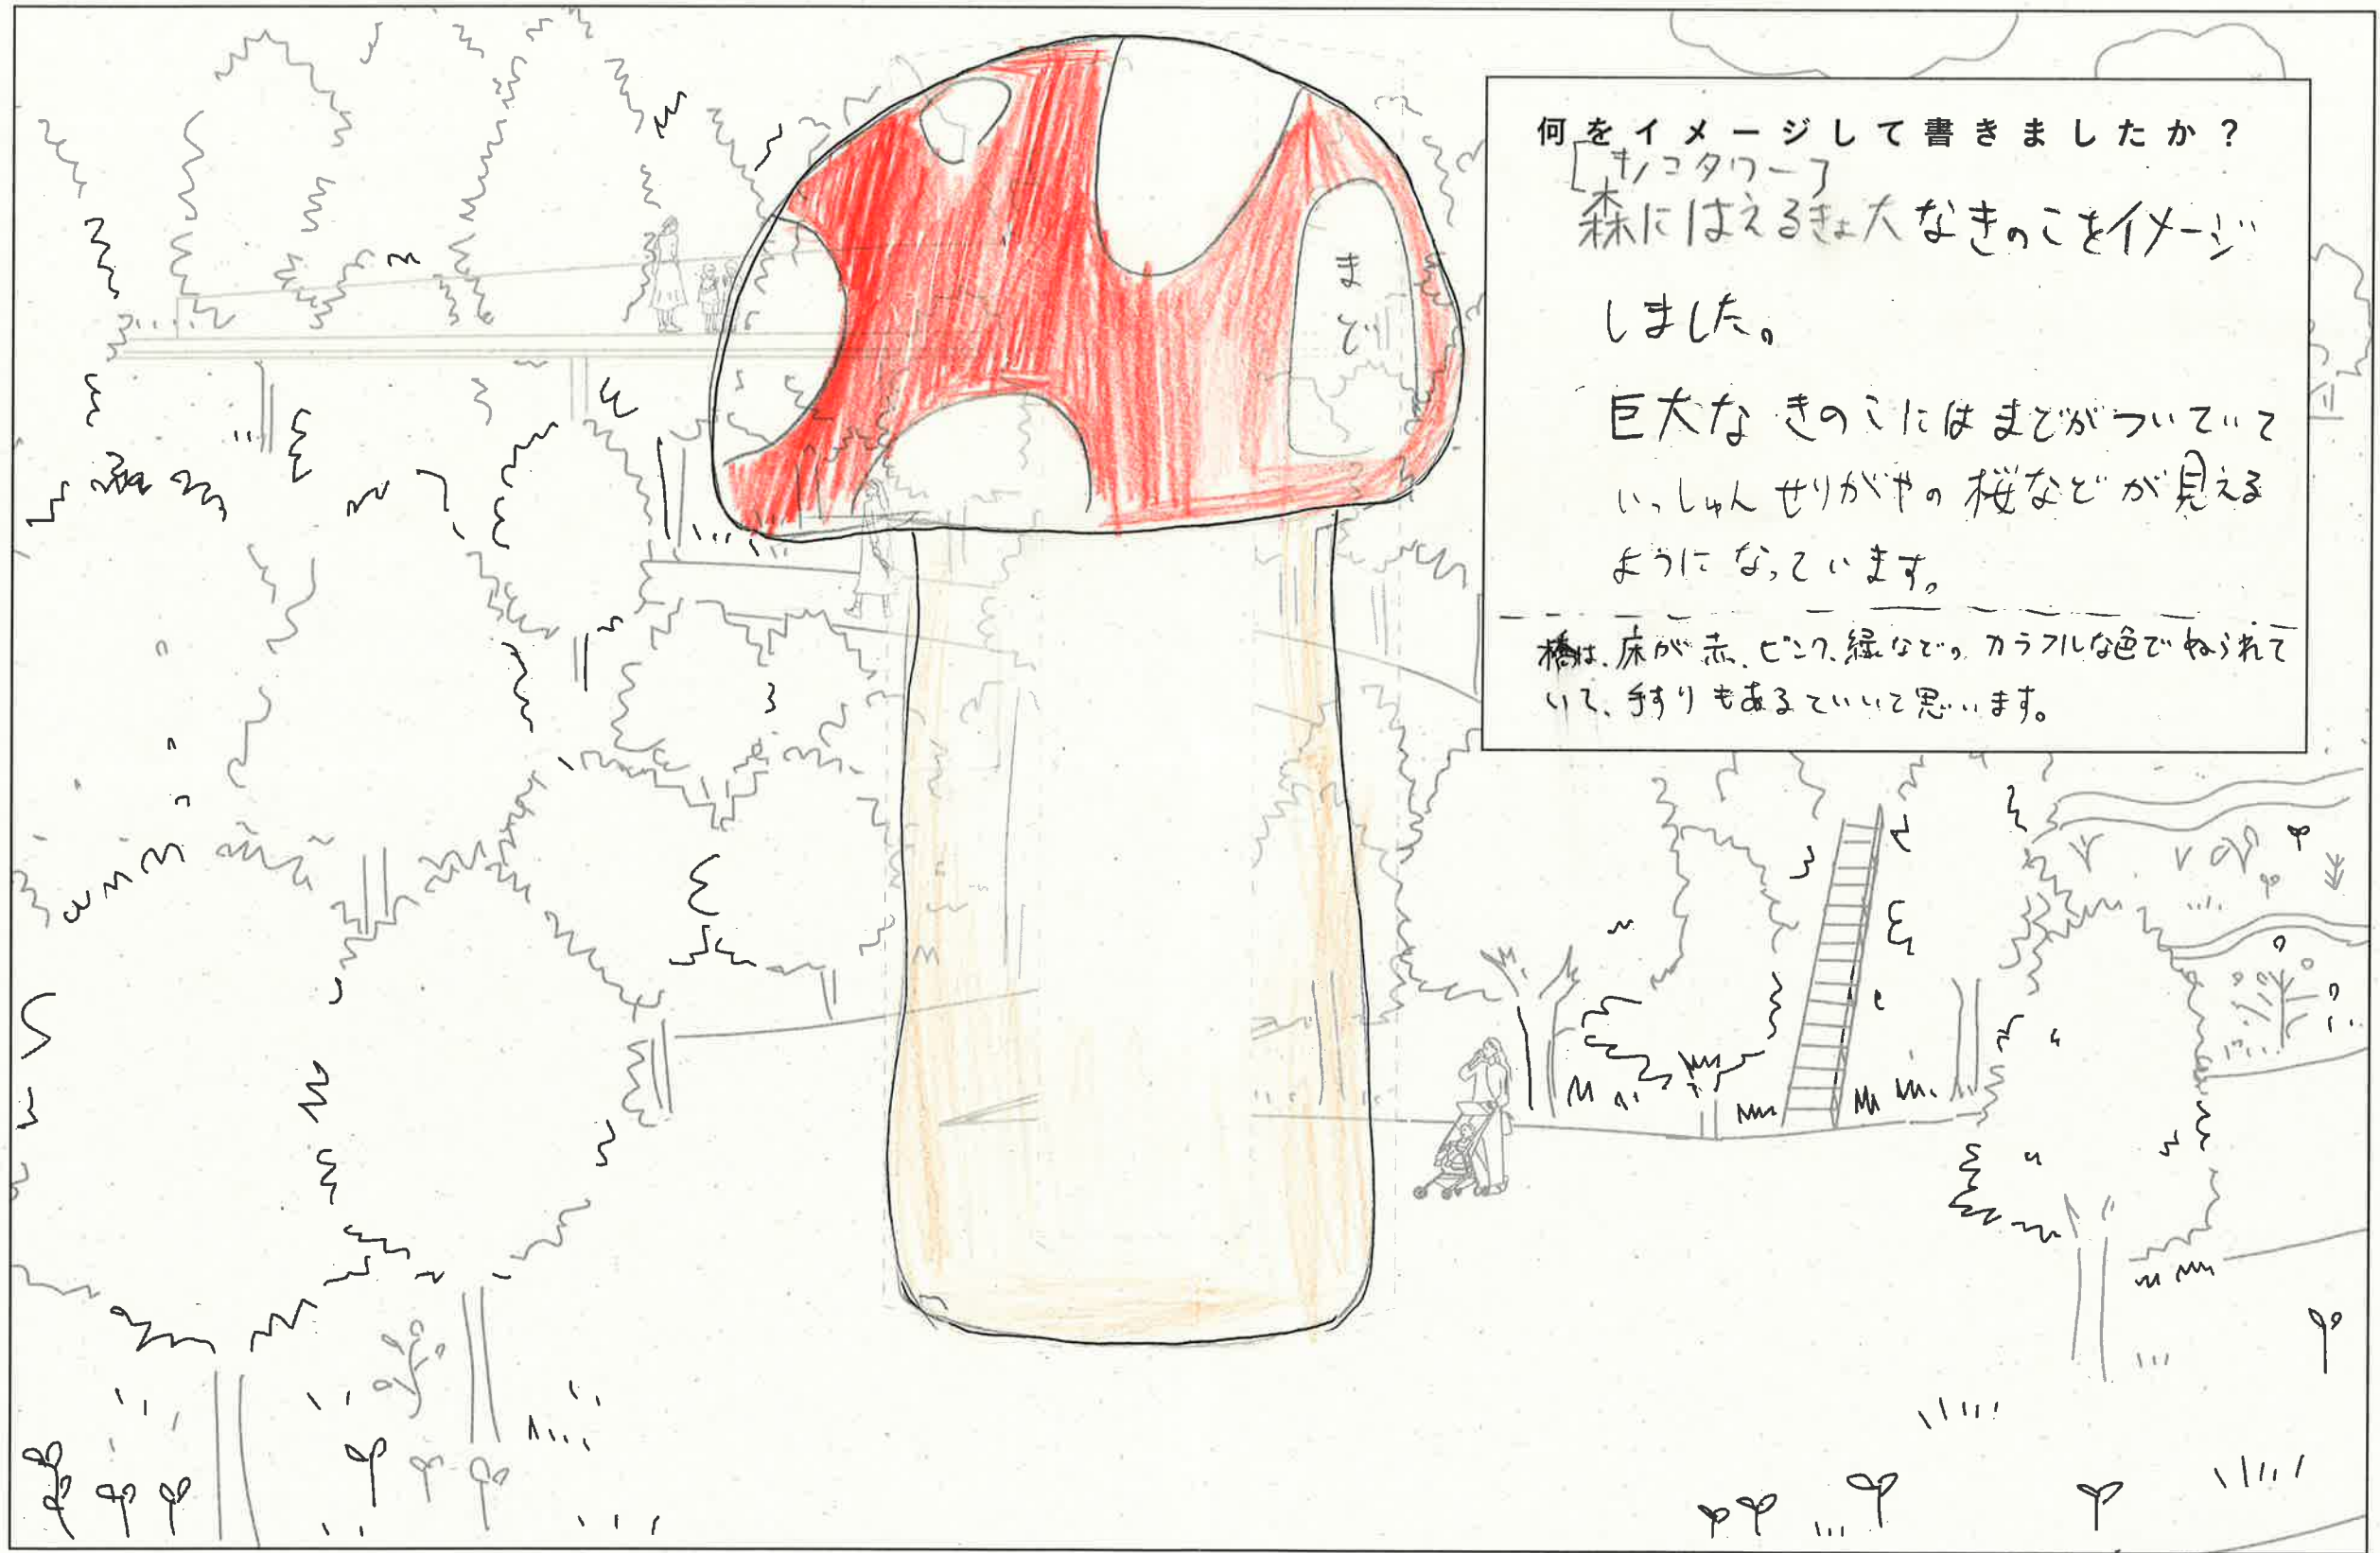 何をイメージして書きましたか？
[キノコタワー]
森にはえるきょ大なきのこをイメージ
しました。
巨大なきのこにはまどがついていて
いっしゅんせりがやの桜などが見える
ようになっています。
橋は、床が赤、ピンク、緑などの、カラフルな色でぬられて
いて、手すりもあるといいと思います。
まど